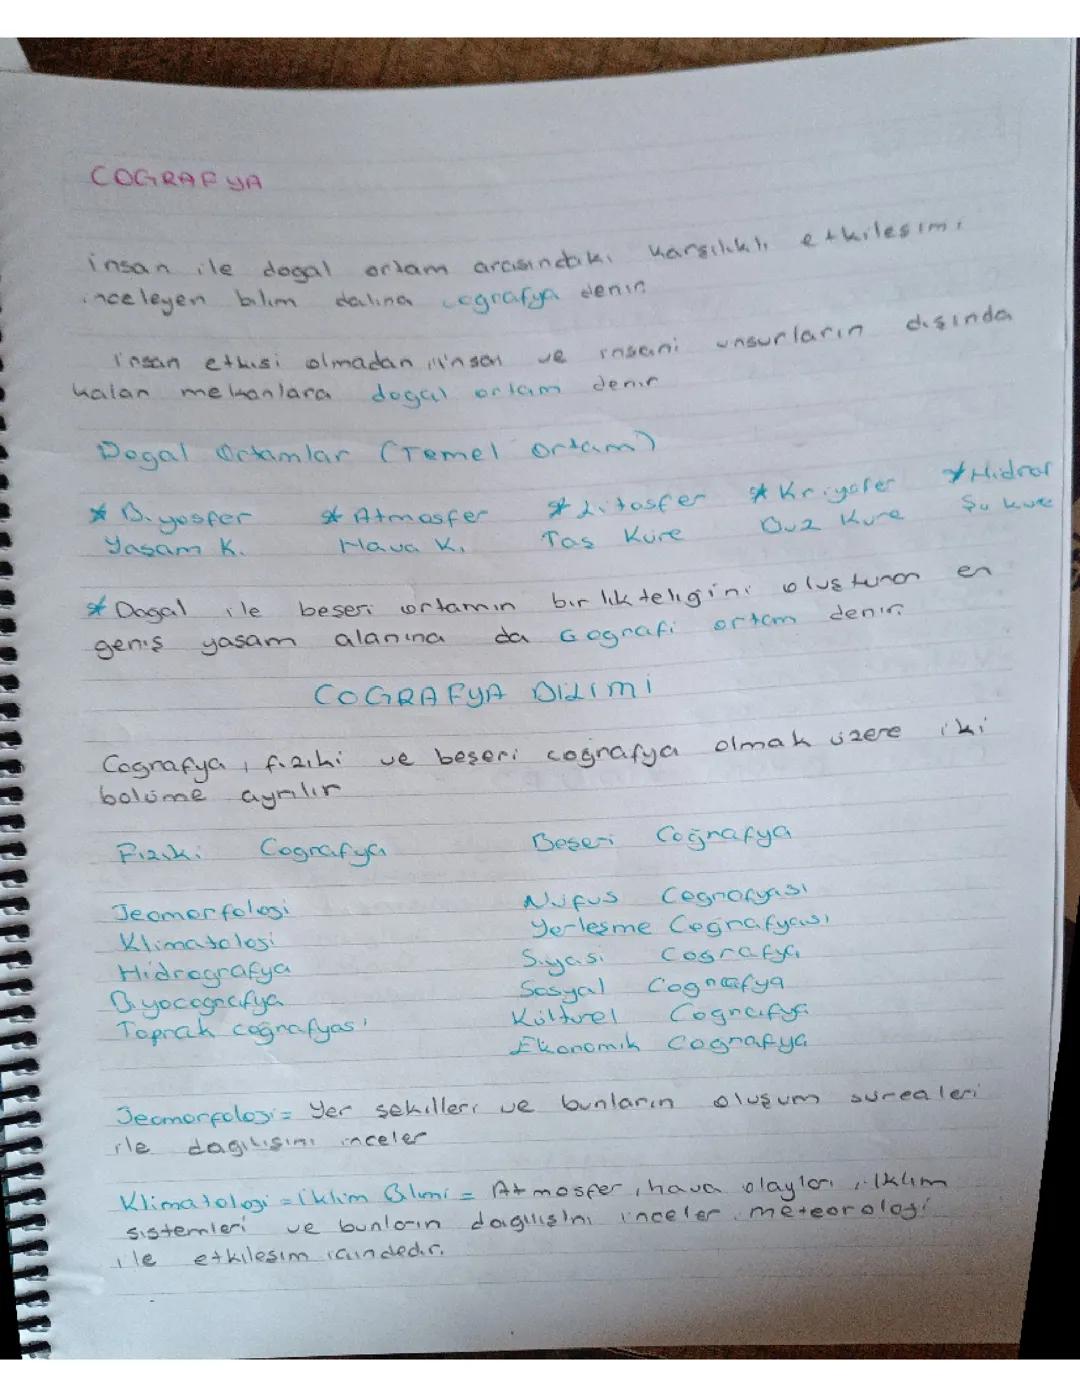 COGRAFYA
insan ile dogal ortam arasındaki karşılıklı etkilesimi
inceleyen bilim dalına cografya denir
insan etkisi olmadan insan ve insani unsurların dışında
kalan mekanlara dogal ortam denir
Dogal Ortamlar (Temel ortam)
* Biyosfer * Atmosfer * Litosfer * Kriyosfer * Hidros
Yaşam K. Hava K. Taş Küre Buz Kure Su kure
* Dogal ile beseri ortamın birlikteligini oluşturan en
geniş yaşam alanına da Cografi ortam denir.
COGRAFYA BİLİMİ
Cografya, fiziki ve beşeri coğrafya olmak üzere iki
bolüme ayrılır
Fiziki Cografya Beşeri Coğrafya
Jeomorfoloji Nüfus Cografyası
Klimatoloji Yerleşme Cografyası
Hidrografya Siyasi Cografya
Biyocografya Sosyal Cografya
Toprak coğrafyası Kültürel Cografya
Ekonomik Cografya
Jeomorfoloji = Yer şekilleri ve bunların oluşum surecleri
ile dagılışını inceler
Klimatoloji = iklim Bilimi = Atmosfer, hava olayları, iklim
sistemleri ve bunların dagılışını inceler. meteoroloji
ile etkileşim icindedir.